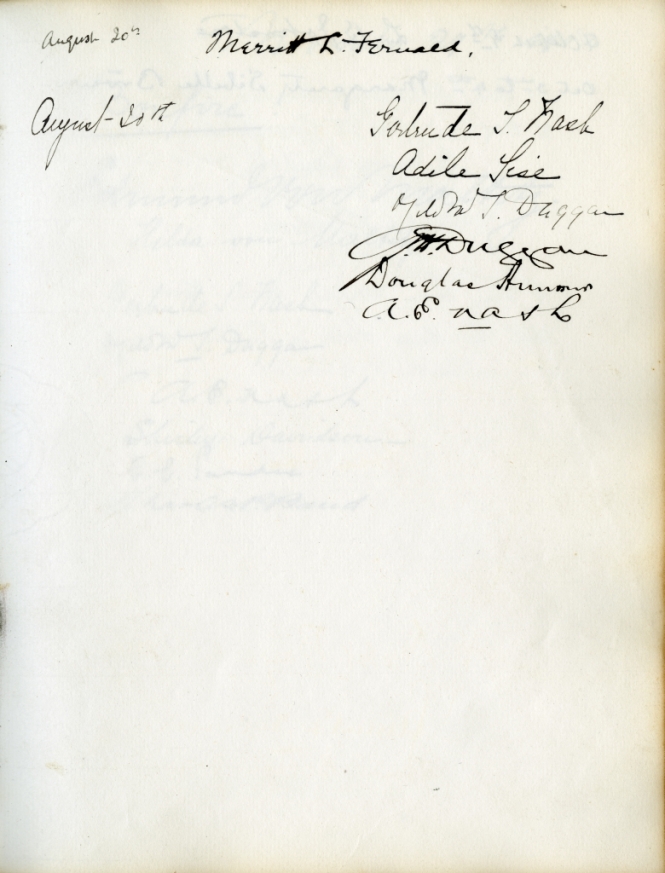 August 20th Merritt L. Fernald.
August 20th Gertrude S. Nash
Adile Sise
Mildred S. Duggan
G.H. Duggan
Douglas
A. E. Nash